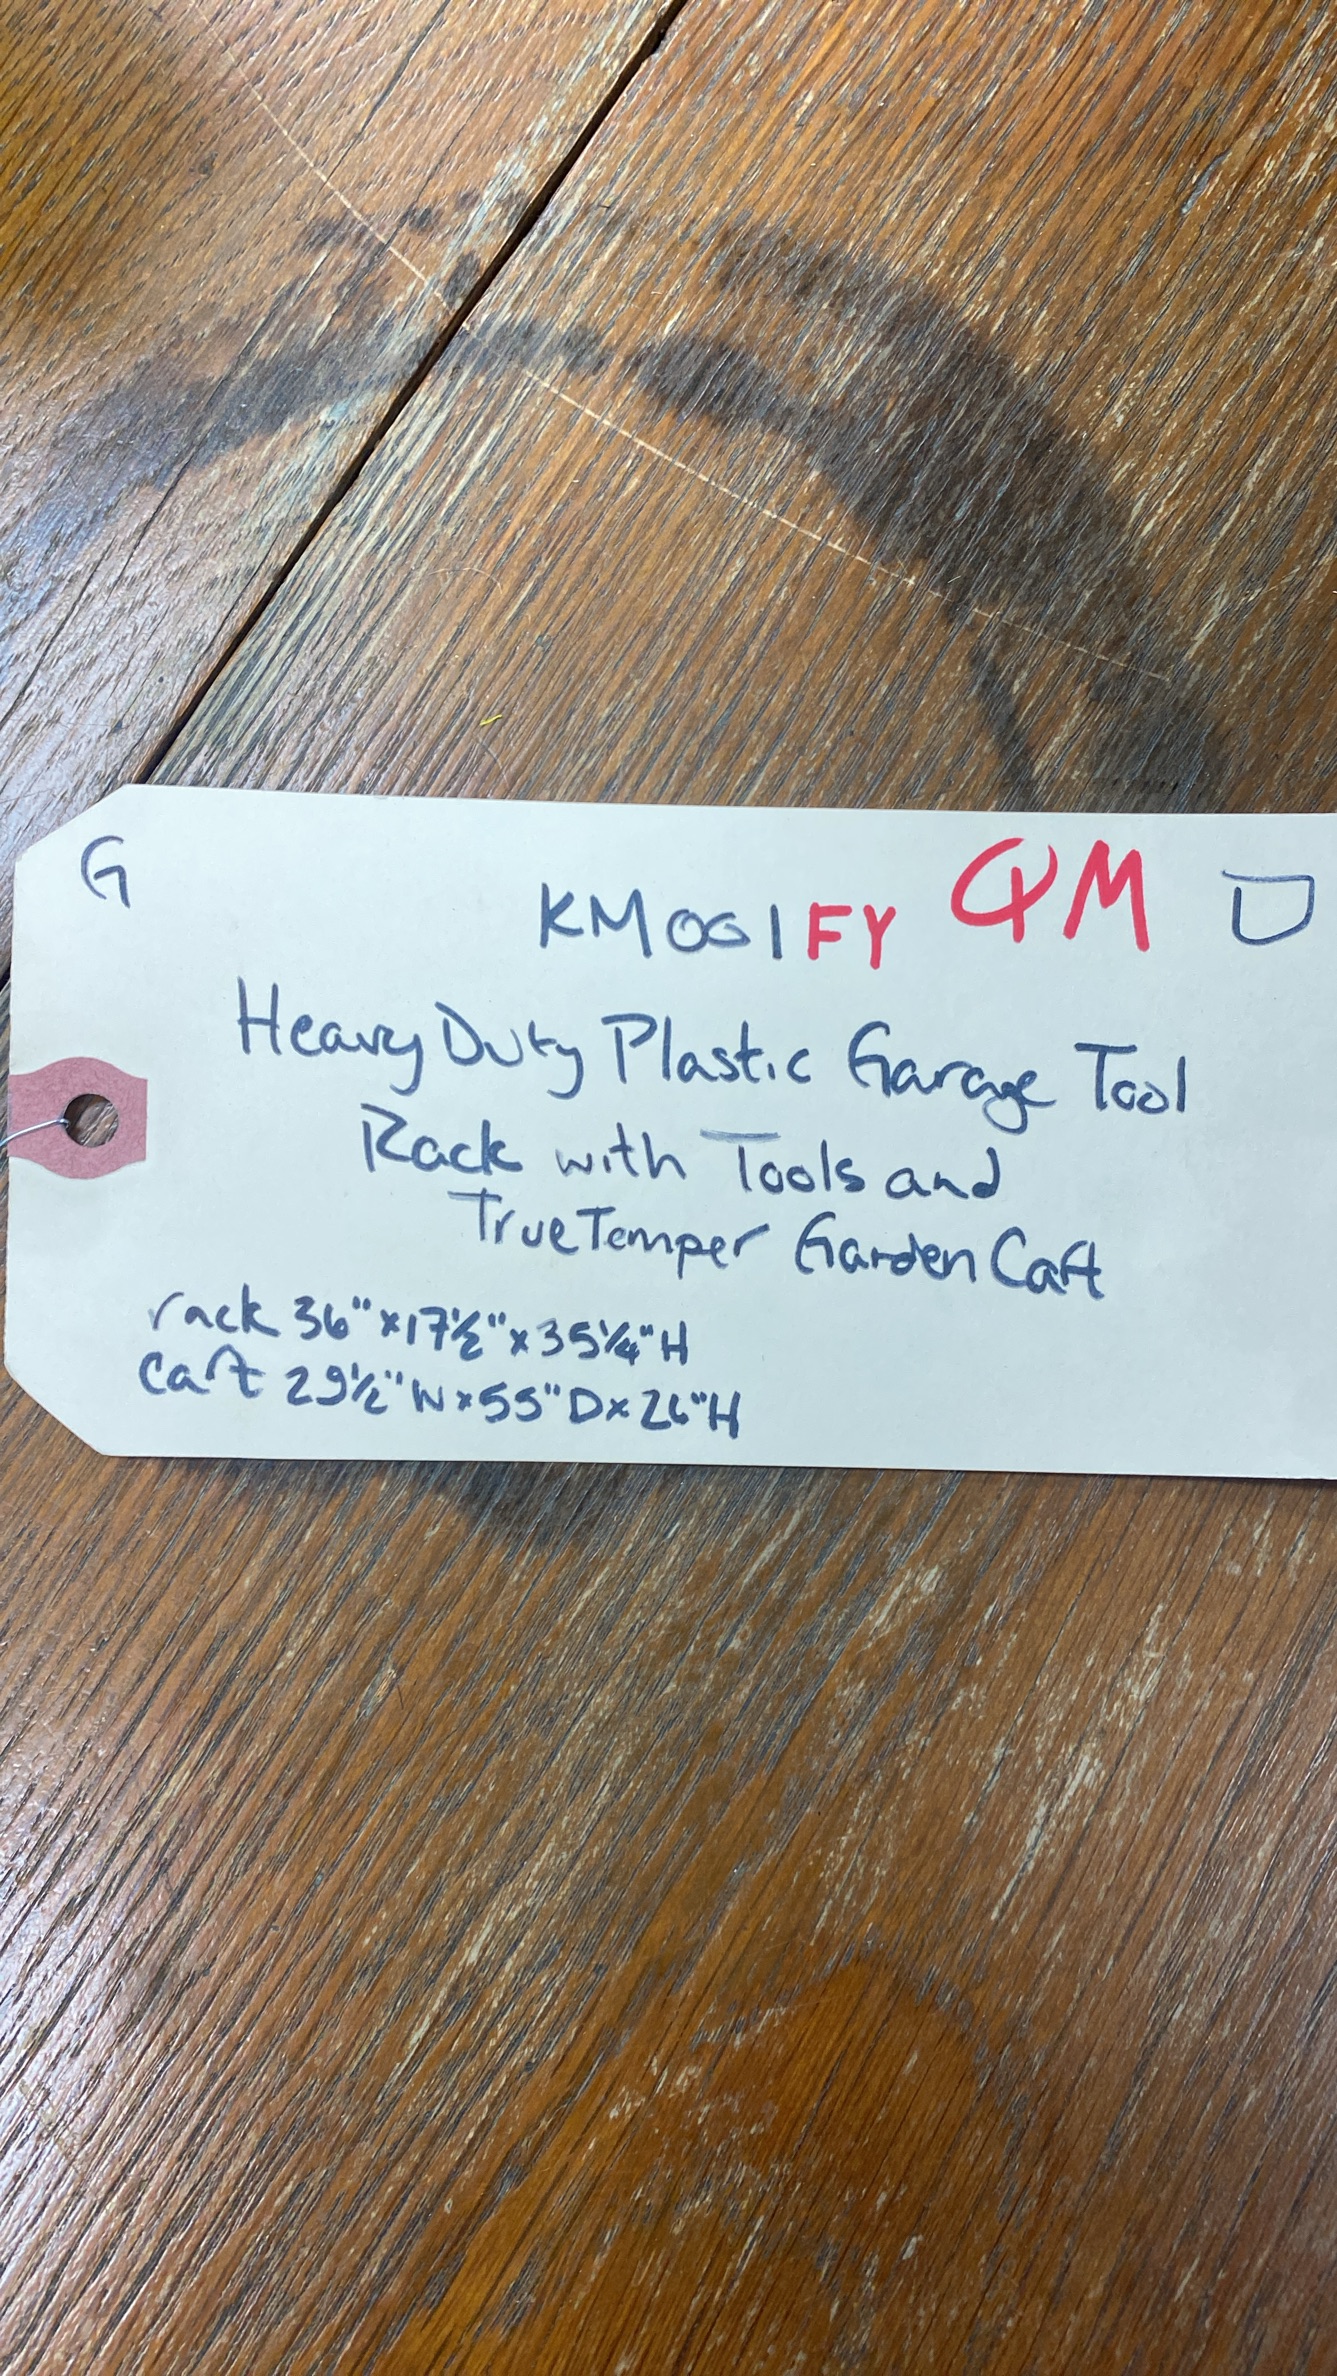 G
KM001FY QM D
Heavy Duty Plastic Garage Tool
Rack with Tools and
True Temper Garden Cart
rack 36"x17½"x35¼"H
Cart 29½"Wx55"Dx26"H